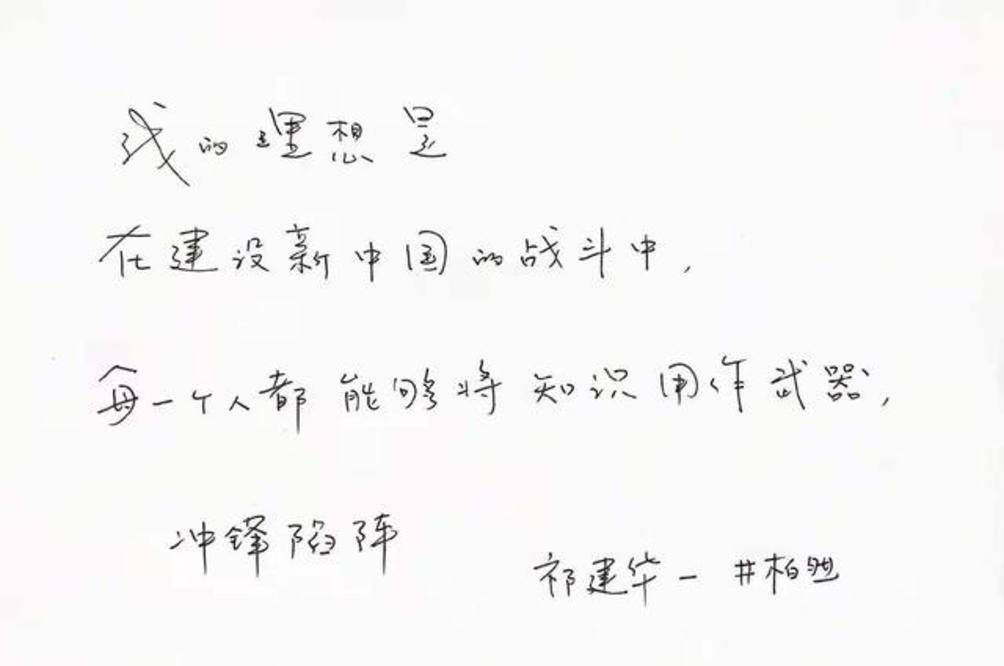 我的理想是
在建设新中国的战斗中,
每一个人都能够将知识用作武器,
冲锋陷阵
祁建华一井柏然